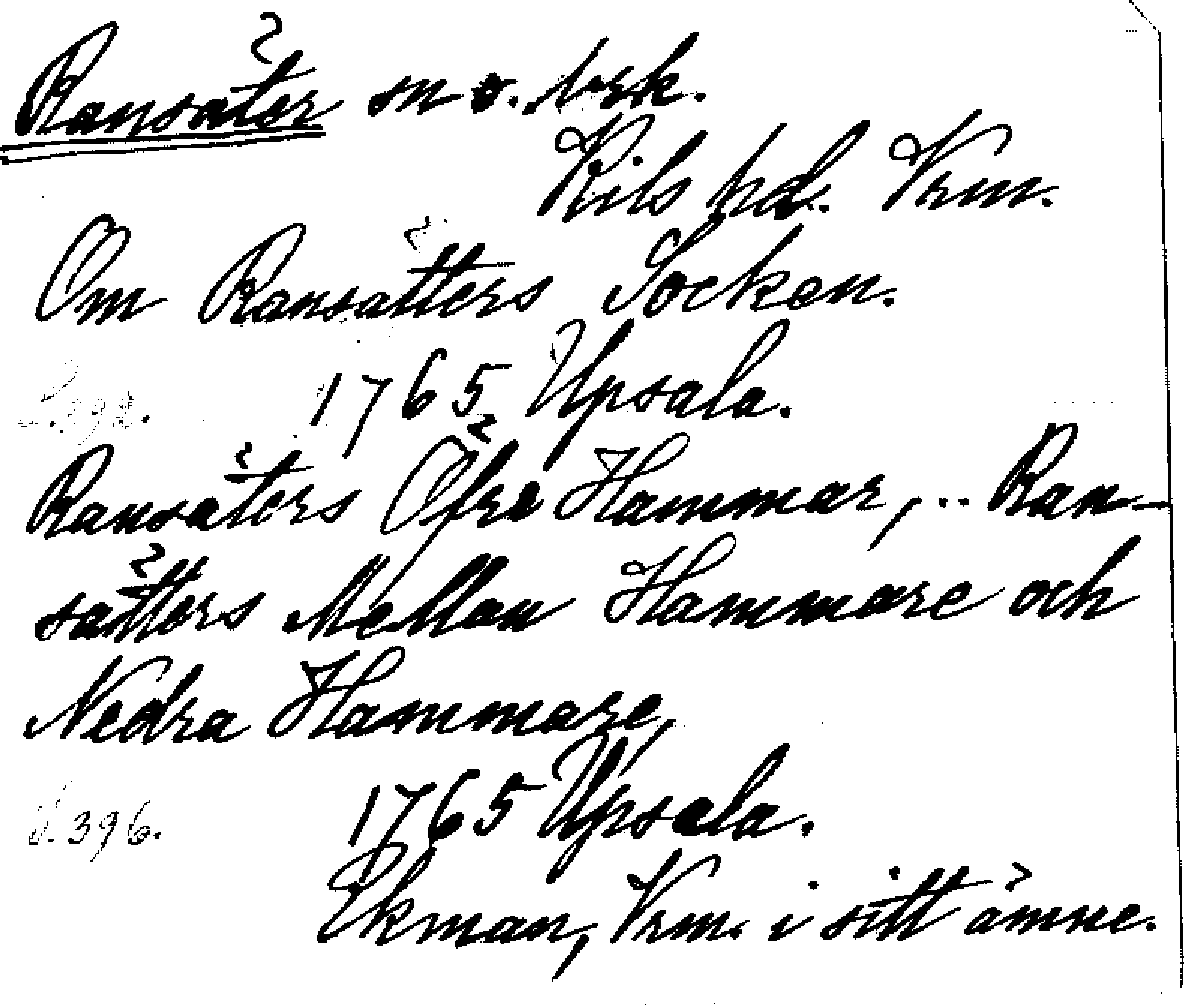 Ransäter sn o. brk.
Kils hd. Vrm.
Om Ransätters Socken.
S. 392. 1765 Upsala.
Ransäters Öfre Hammar, .. Ran-
sätters Mellan Hammare och
Nedra Hammare,
S. 396. 1765 Upsala.
Ekman, Vrm. i sitt ämne.